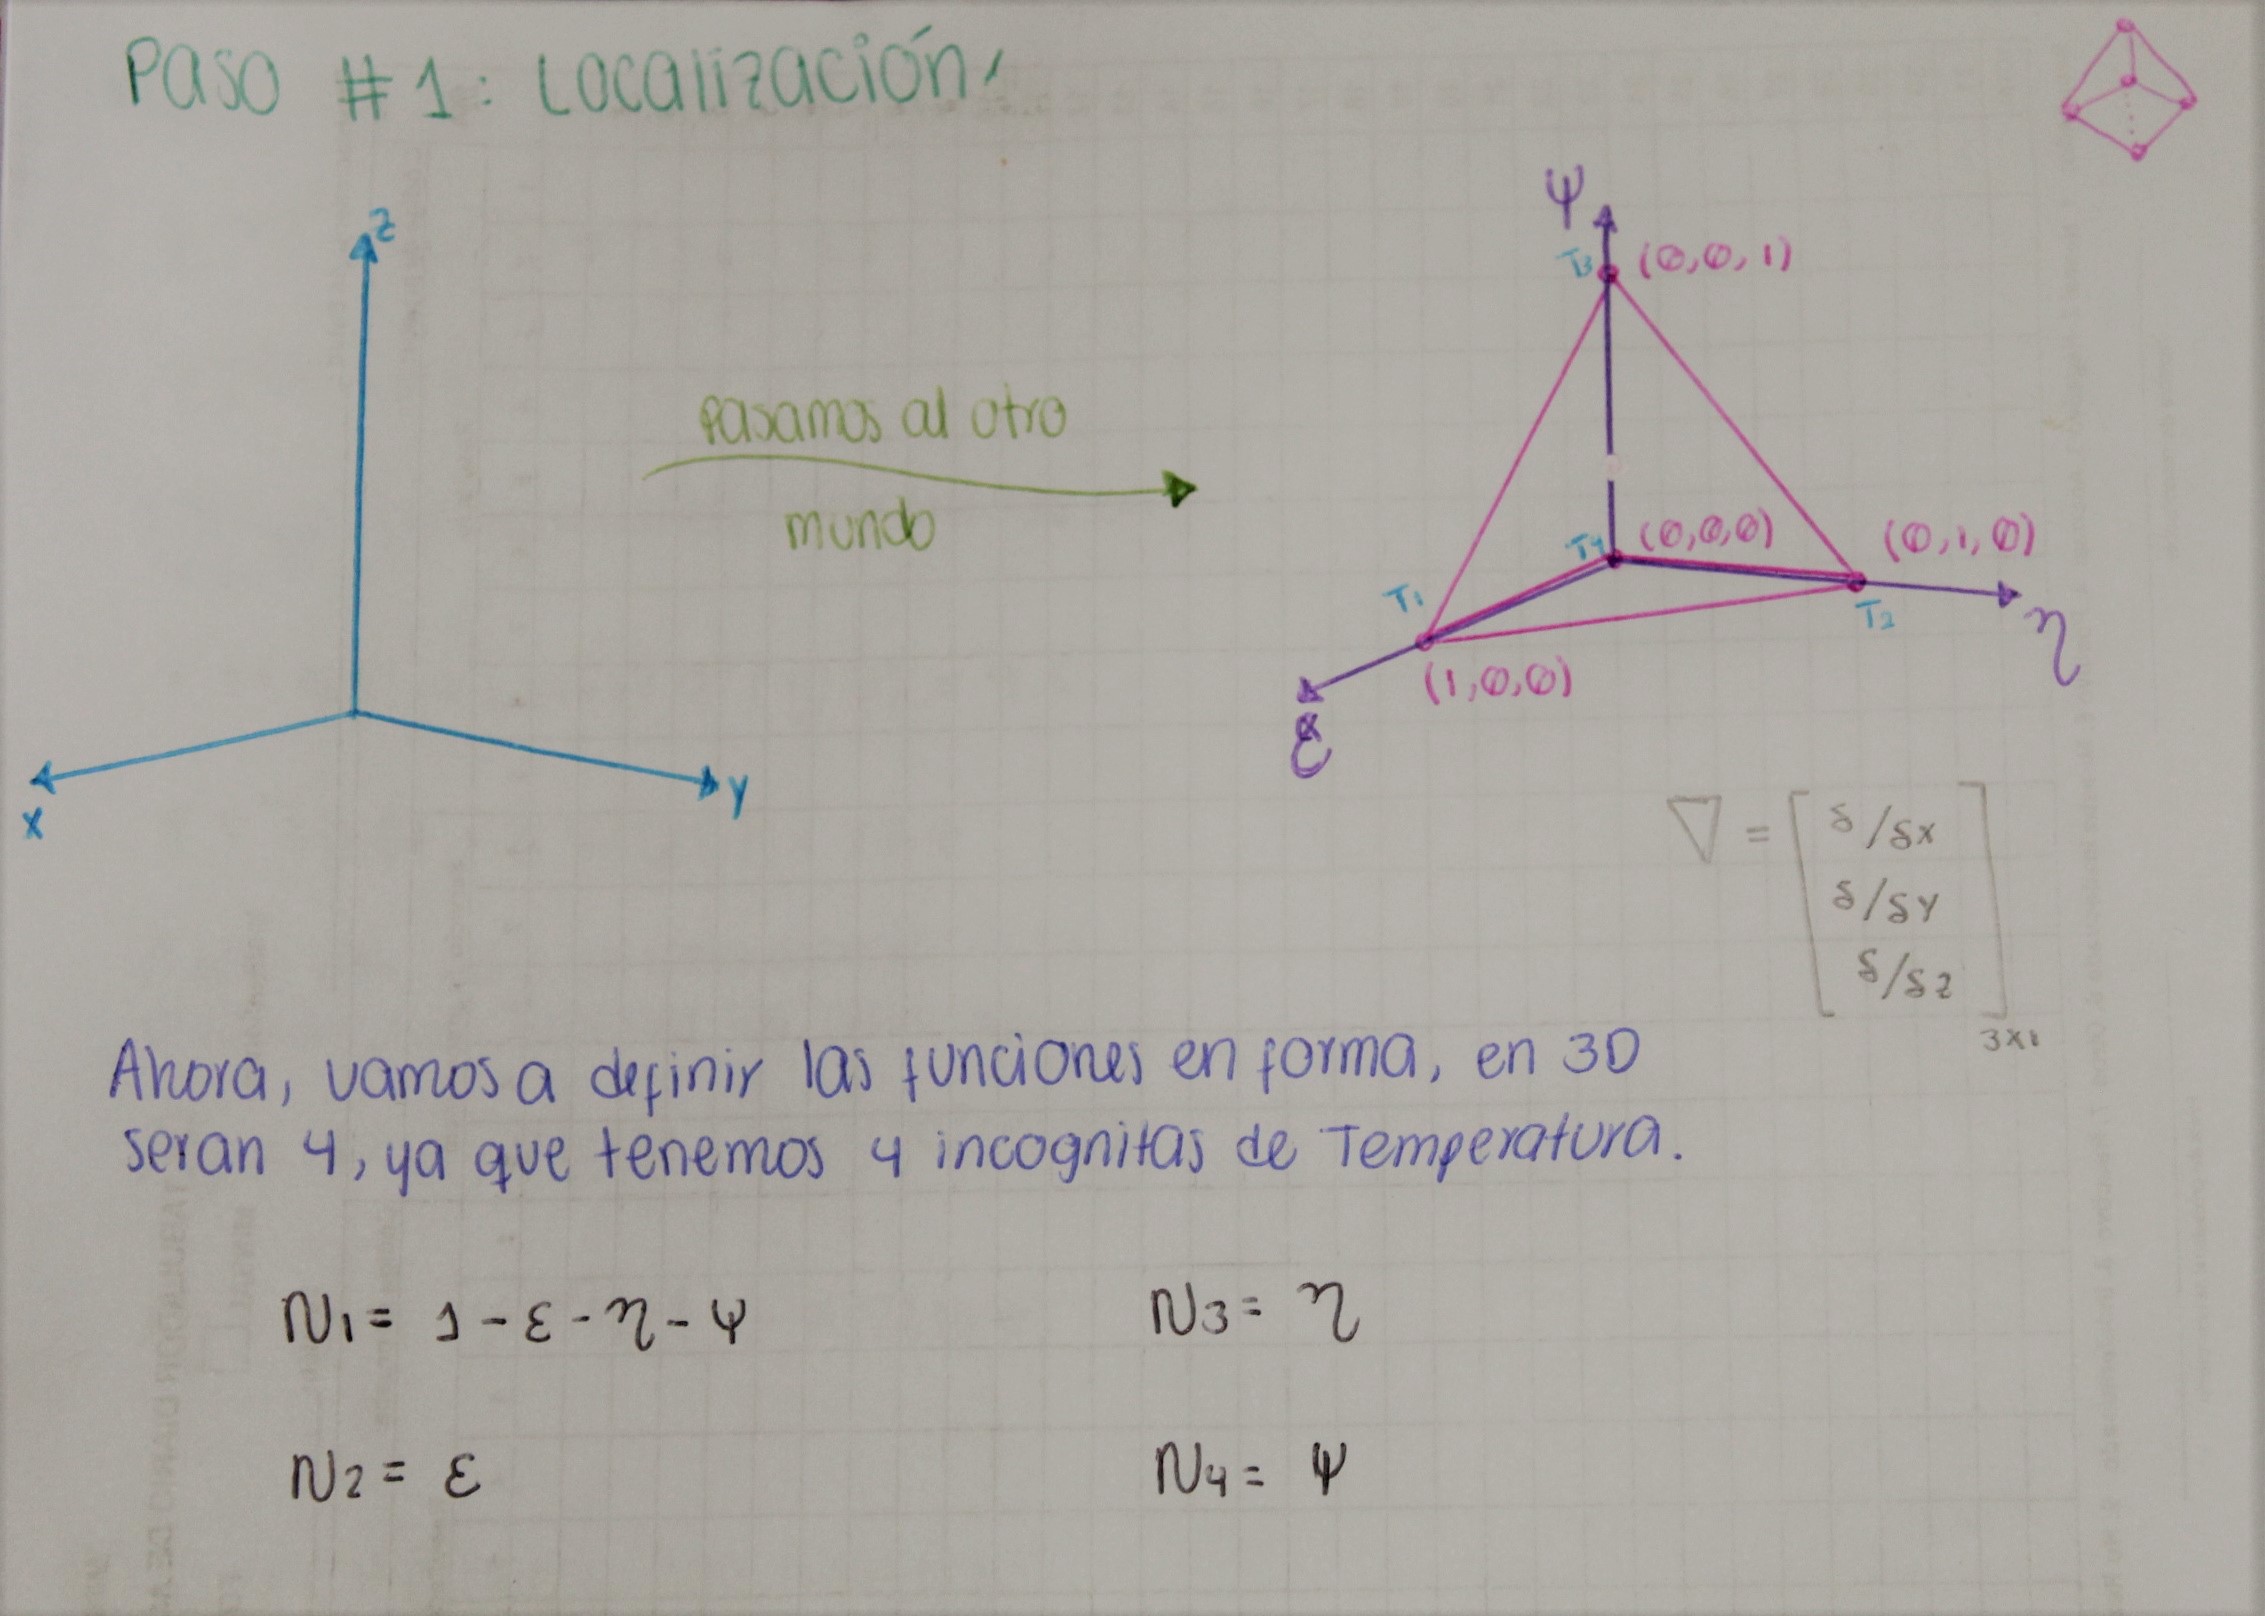 Paso #1: Localización,
z
x
y
pasamos al otro
mundo
Ψ
T3 (0,0,1)
T4 (0,0,0)
(0,1,0)
T1
T2
η
(1,0,0)
ε
∇ = [ δ/δx
δ/δy
δ/δz ] 3x1
Ahora, vamos a definir las funciones en forma, en 3D
seran 4, ya que tenemos 4 incognitas de Temperatura.
N1 = 1 - ε - η - Ψ
N3 = η
N2 = ε
N4 = Ψ